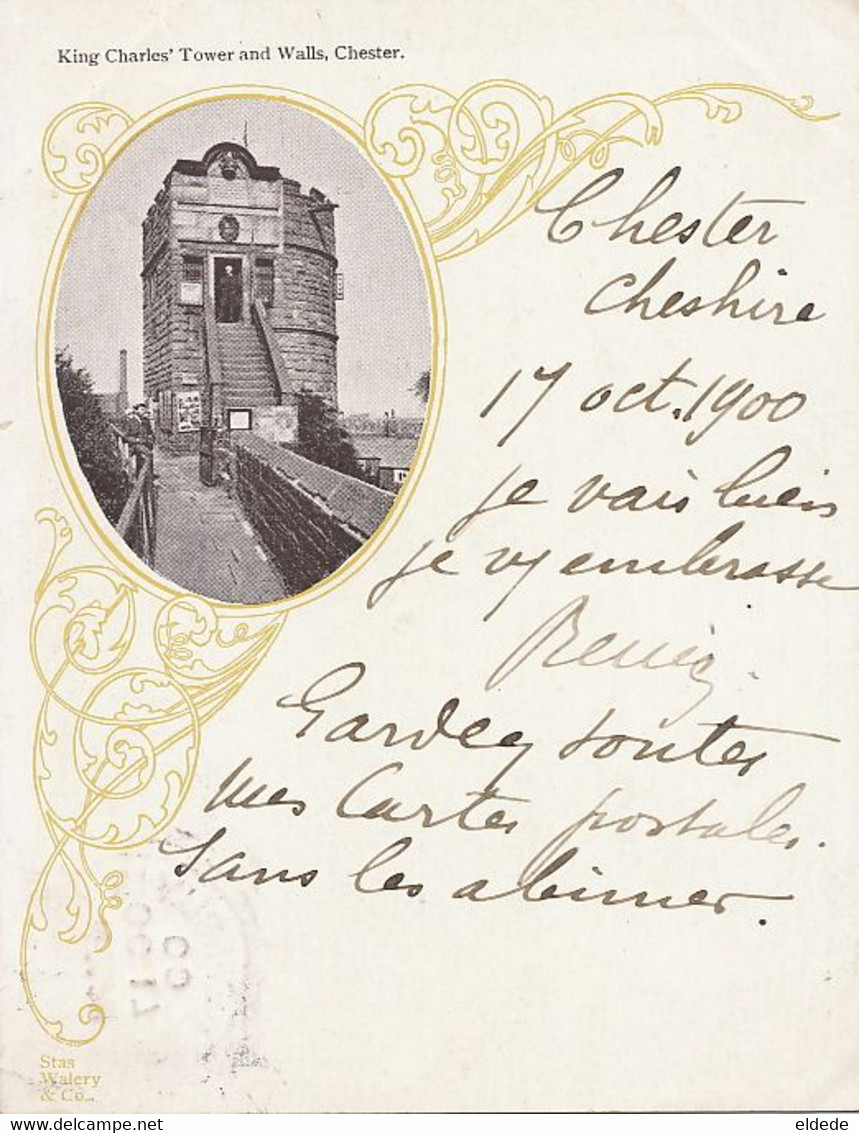 King Charles' Tower and Walls, Chester.
Chester
Cheshire
17 oct. 1900
je vais bien
je vs embrasse
Gardez toutes
mes Cartes postales.
Sans les abimer.
CO
OC 17
Stas
Walery
& Co.
Delcampe.net
eldede